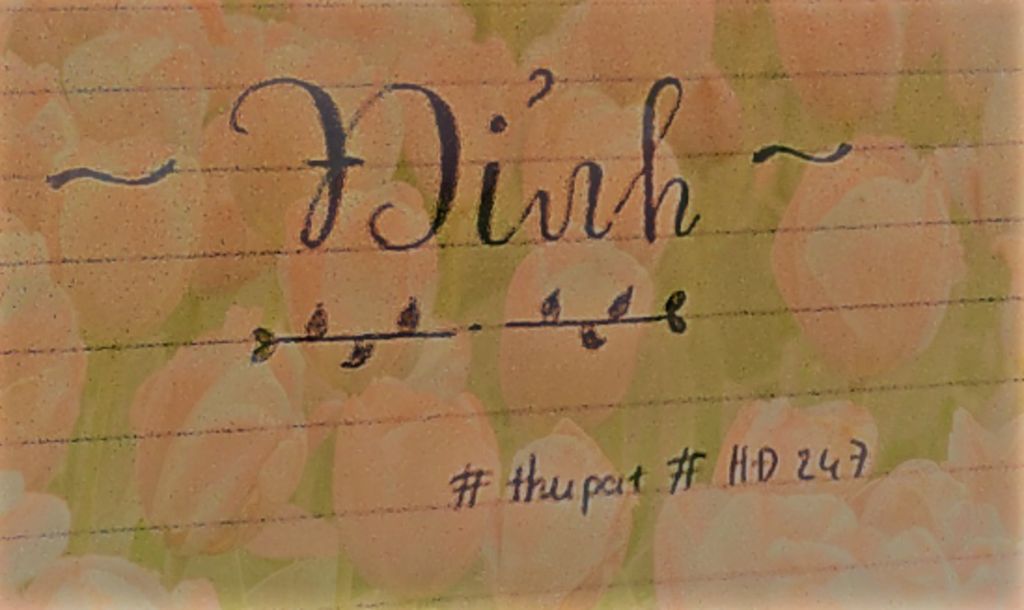 ~ Đỉnh ~
# thupat # HD 247